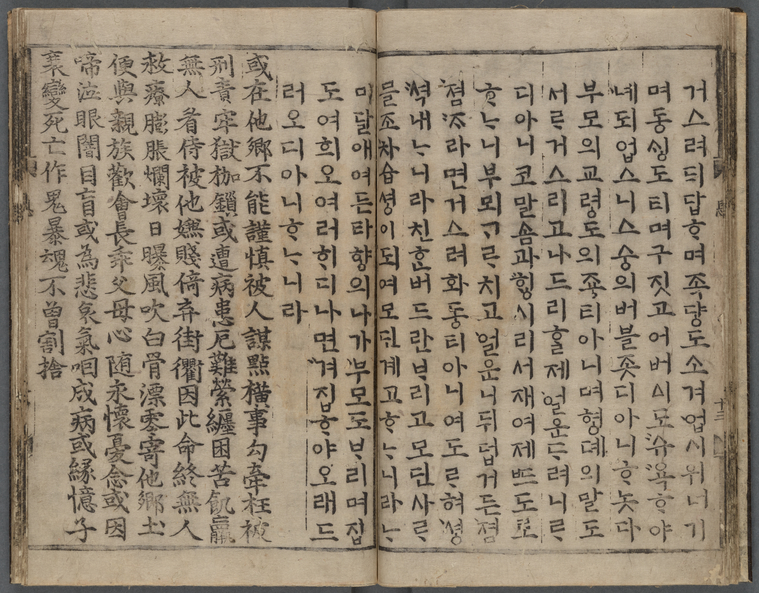 거스려ᄃᆡ답ᄒᆞ며족댱도소겨업시위너기
며동ᄉᆡᆼ도티며구짓고어버ᅀᅵ도슈욕ᄒᆞ야
녜되업스니스숭의버블좃디아니ᄒᆞ놋다
부모의교령도의족티아니며형뎨의말도
서르거스리고나드리ᄒᆞᆯ제얼운ᄃᆞ려니르
디아니코말솜과ᄒᆡᆼ시리서재여제ᄠᅳ도로
ᄒᆞᄂᆞ니부뫼ᄀᆞᄅᆞ치고얼운니뒤덥거든졈
졈ᄌᆞ라면거스려화동티아니여도ᄅᆞ혀셩
석내ᄂᆞ니라친ᄒᆞᆫ버드란ᄇᆞ리고모딘사ᄅᆞ
믈조차습셩이되여모딘계고ᄒᆞᄂᆞ니라ᄂᆞ
恩 十三
미달애여든타향의나가부모도ᄇᆞ리며집
도여희오여러ᄒᆡ디나면겨집ᄒᆞ야오래드
러오디아니ᄒᆞᄂᆞ니라
或在他郷不能謹慎被人謀點横事勾牽枉被
刑責牢獄枷鎖或遭病患厄難縈纏困苦飢羸
無人看侍被他嫌賤倚弃街衢因此命終無人
救療膨脹爛壞日曝風吹白骨漂零寄他郷土
便與親族歡會長乖父母心随永懷憂念或因
啼泣眼闇目盲或為悲哀氣咽成病或緣憶子
衰變死亡作鬼暴魂不曾割捨